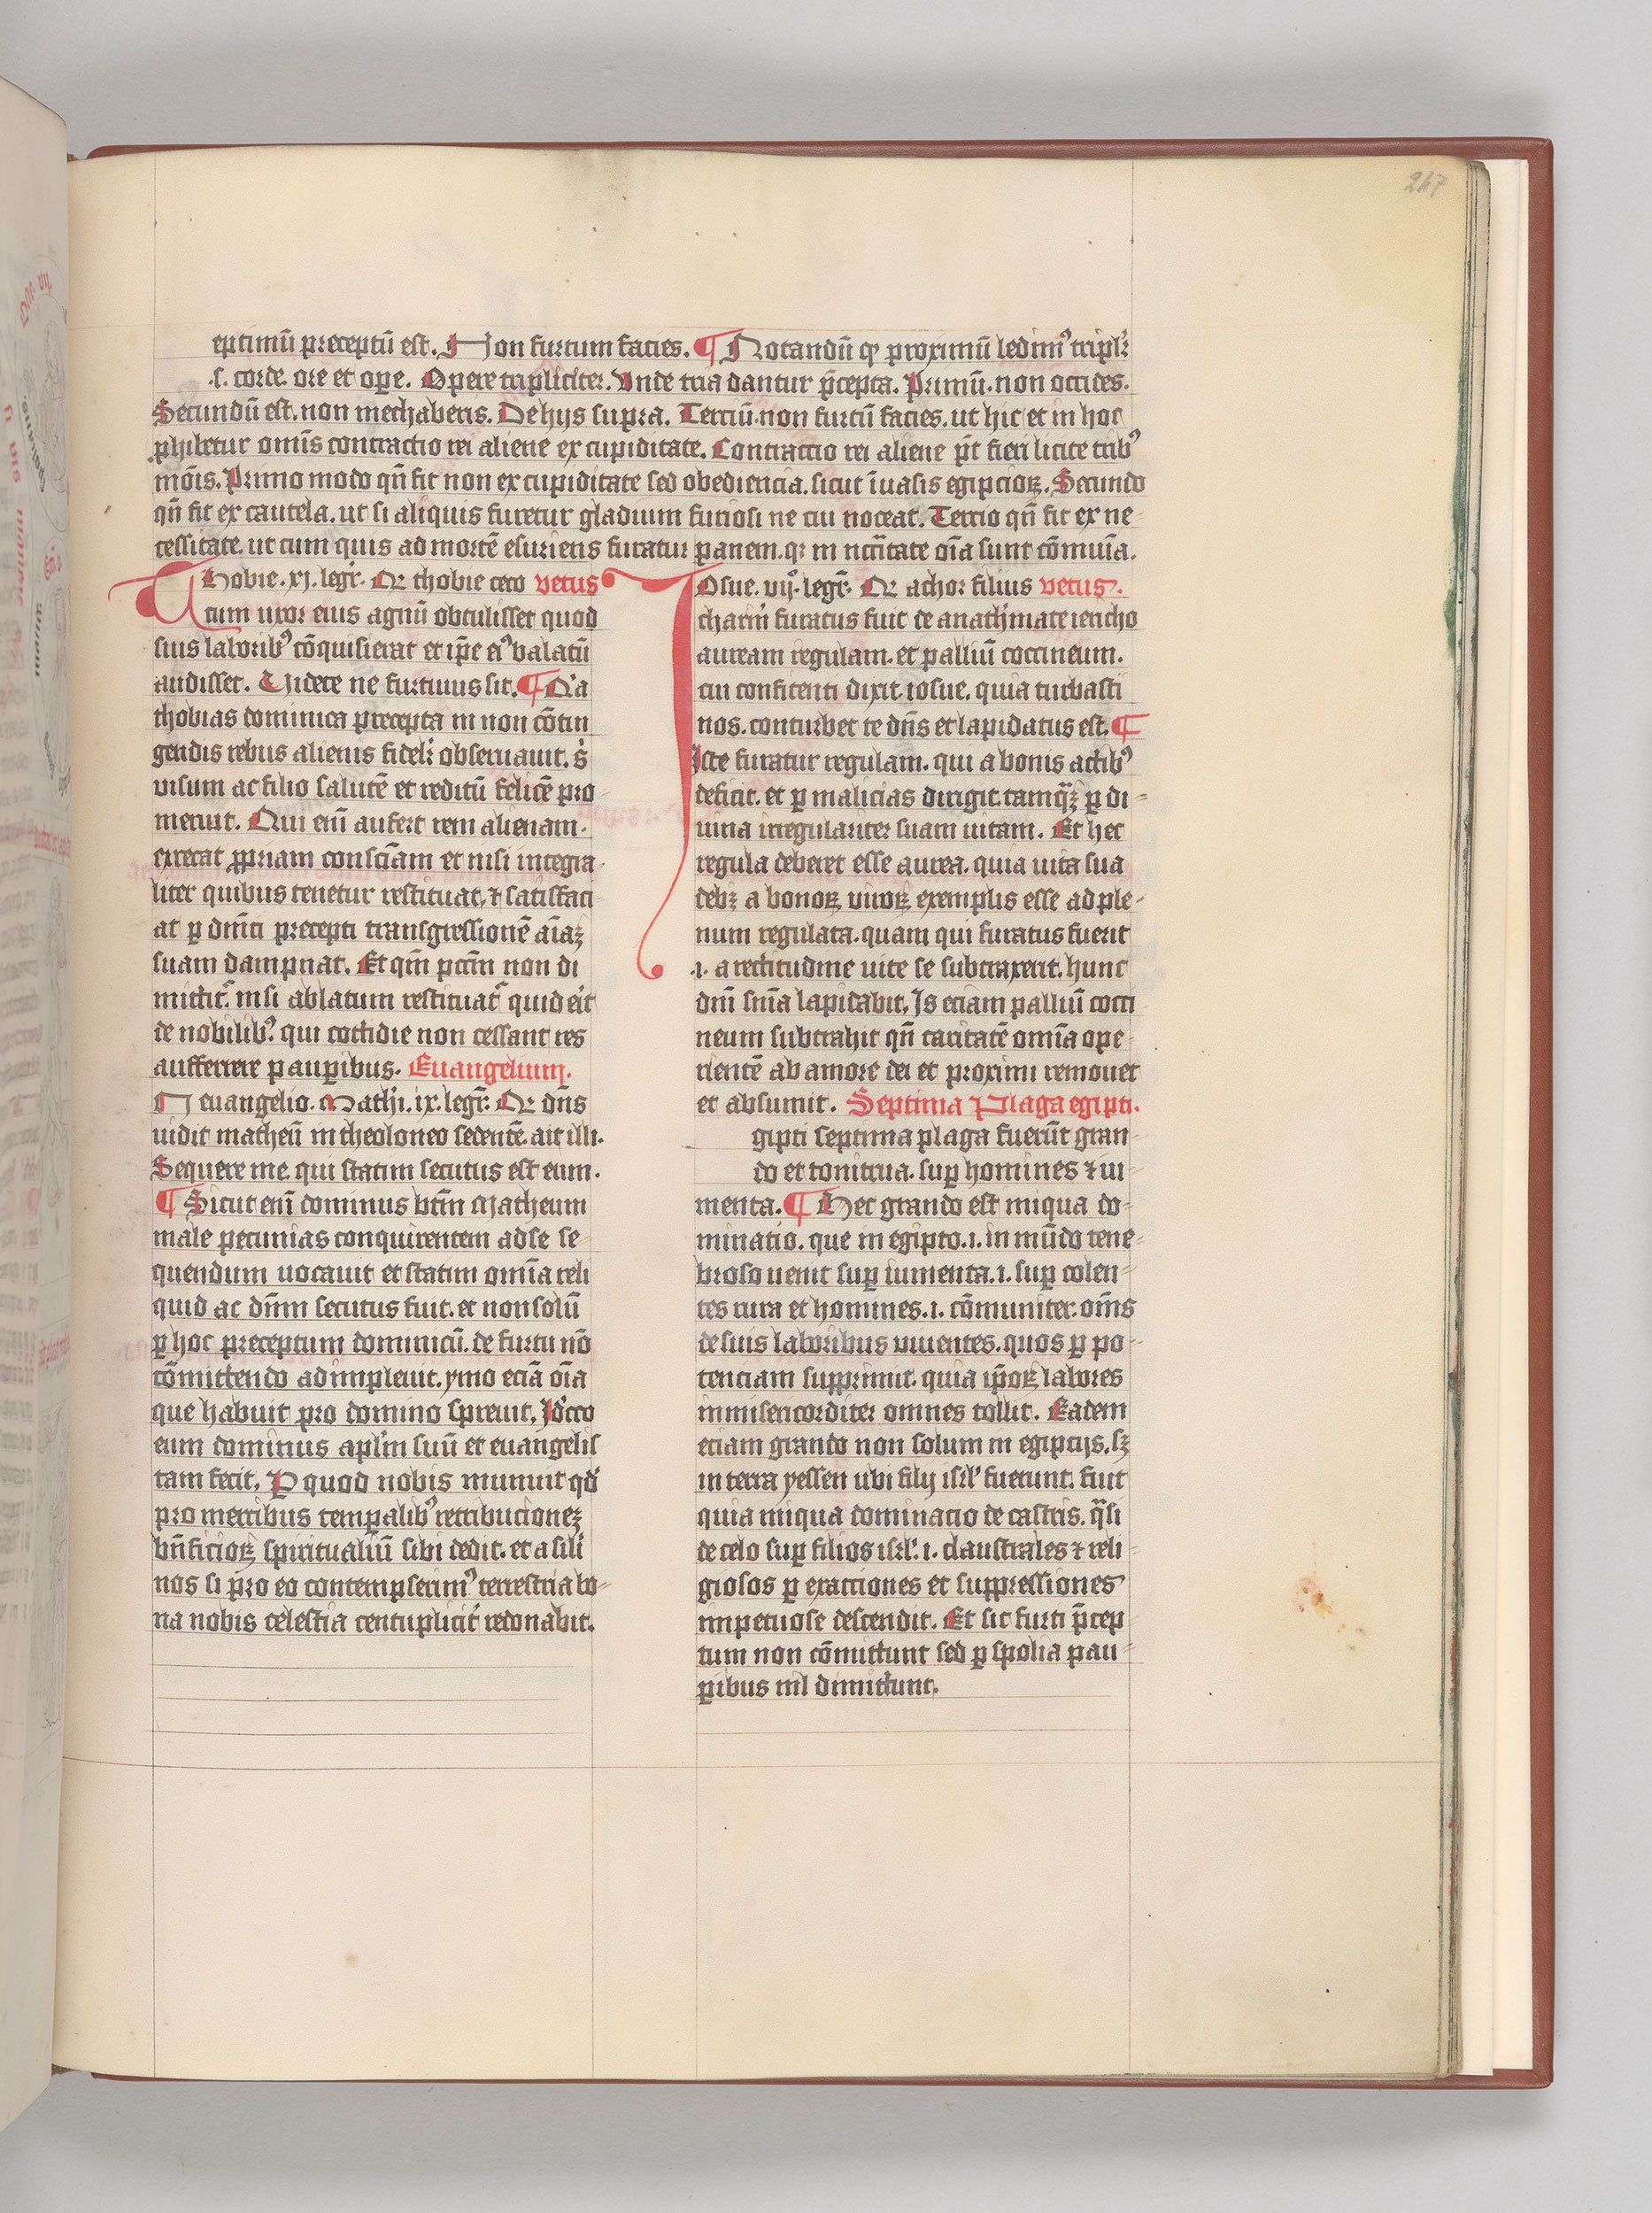 267
eptimū preceptū est. Non furtum facies. ¶ Notandū qꝫ proximū ledimꝰ tripl'r
.s. corde. ore et oꝑe. Opere tripliciter. Vnde tria dantur p̄cepta. Primū. non occides.
Secundū est. non mechaberis. De hijs supra. Terciū. non furtū facies. ut hic et in hoc
ꝓhibetur omīs contractio rei aliene ex cupiditate. Contractio rei aliene p̄t fieri licite tribꝰ
mōis. Primo modo qn̄ fit non ex cupiditate sed obediencia. sicut ī uasis egipcioꝝ. Secundo
qn̄ fit ex cautela. ut si aliquis furetur gladium furiosi ne cui noceat. Tercio qn̄ fit ex ne-
cessitate. ut cum quis ad mortē esuriens furatur panem. qr in nc̄citate oīa sunt cōmuīa.
Thobie. xj. legr̄. Qr thobie ceco vetus
cum uxor eius agnū obtulisset quod
suis laboribꝰ cōquisierat et ip̄e eiꝰ balatū
audisset. Videte ne furtiuus sit. ¶ Q'a
thobias dominica precepta in non cōtin
gendis rebus alienis fidelr̄ obseruauit. s'
uisum ac filio salutē et reditū felicē pro-
meruit. Qui eni aufert rem alienam.
excecat ꝓpriam consciām et nisi integra-
liter quibus tenetur restituat, ⁊ satisfaci
at ꝑ dn̄ici precepti transgressionē aīaꝫ
suam dampnat. Et qm̄ pccm̄ non di
mittit' nisi ablatum restituat' quid erit
de nobilibꝰ. qui cottidie non cessant res
aufferrere pauꝑibus. Euangelium.
N euangelio. Mathi. ix. legr̄. Qr dn̄s
uidit matheū in theoloneo sedentē. ait illi.
Sequere me. qui statim secutus est eum.
¶ Sicut eni dominus btm̄ Matheum
male pecunias conquirentem ad se se-
quendum uocauit et statim omīa reli
quid ac dn̄m secutus fuit. et non solū
ꝑ hoc preceptum dominicū. de furtu nō
cōmittendo adimpleuit. ymo eciā oīa
que habuit pro domino spreuit, Idcco
eum dominus aplm̄ suū et euangelis
tam fecit, P quod nobis innuit qd'
pro mercibus temꝑalibꝰ retribucioneꝫ
bn̄ficioꝝ spiritualiū sibi dedit. et a sil'i
nos si pro eo contempserimꝰ terrestria bo-
na nobis celestia centuplicit' redonabit.
Iosue. vijº. legr̄. Qr achor filius vetus.
charm̄i furatus fuit de anath'mate iericho
auream regulam. et palliū coccineum.
cui confitenti dixit iosue. quia turbasti
nos. conturbet te dn̄s et lapidatus est. ¶
Iste furatur regulam. qui a bonis actibꝰ
deficit. et ꝑ malicias dirigit. tamq̄ꝫ ꝑ di-
uina irregulariter suam uitam. Et hec
regula deberet esse aurea. quia uita sua
debꝫ a bonoꝝ uiroꝝ exemplis esse ad ple-
num regulata. quam qui furatus fuerit
.i. a rectitudine uite se subtraxerit. hunc
dn̄i sn̄ia lapidabit, Is eciam palliū cocci
neum subtrahit qn̄ caritatē omīa oꝑe-
rientē ab amore dei et proximi remouet
et absumit. Septima Plaga egipti.
gipti septima plaga fuerūt gran-
do et tonitrua. suꝑ homines ⁊ iu-
menta. ¶ Hec grando est iniqua do-
minatio. que in egipto .i. in mūdo tene-
broso uenit suꝑ iumenta .i. suꝑ colen-
tes rura et homines .i. cōmuniter. om̄s
de suis laboribus uiuentes. quos ꝑ po-
tenciam supprimit. quia ip̄oꝝ labores
inmisericorditer omnes tollit. Eadem
eciam grando non solum in egiptijs. sꝫ
in terra yessen ubi filij isrl' fuerunt. fuit
quia iniqua dominacio de castris. q̄si
de celo suꝑ filios isrl'. i. claustrales ⁊ reli-
giosos ꝑ exactiones et suppressiones
impetuose descendit. Et sic furti p̄cep
tum non cōmittunt sed ꝑ spolia pau-
ꝑibus nil dimittunt.